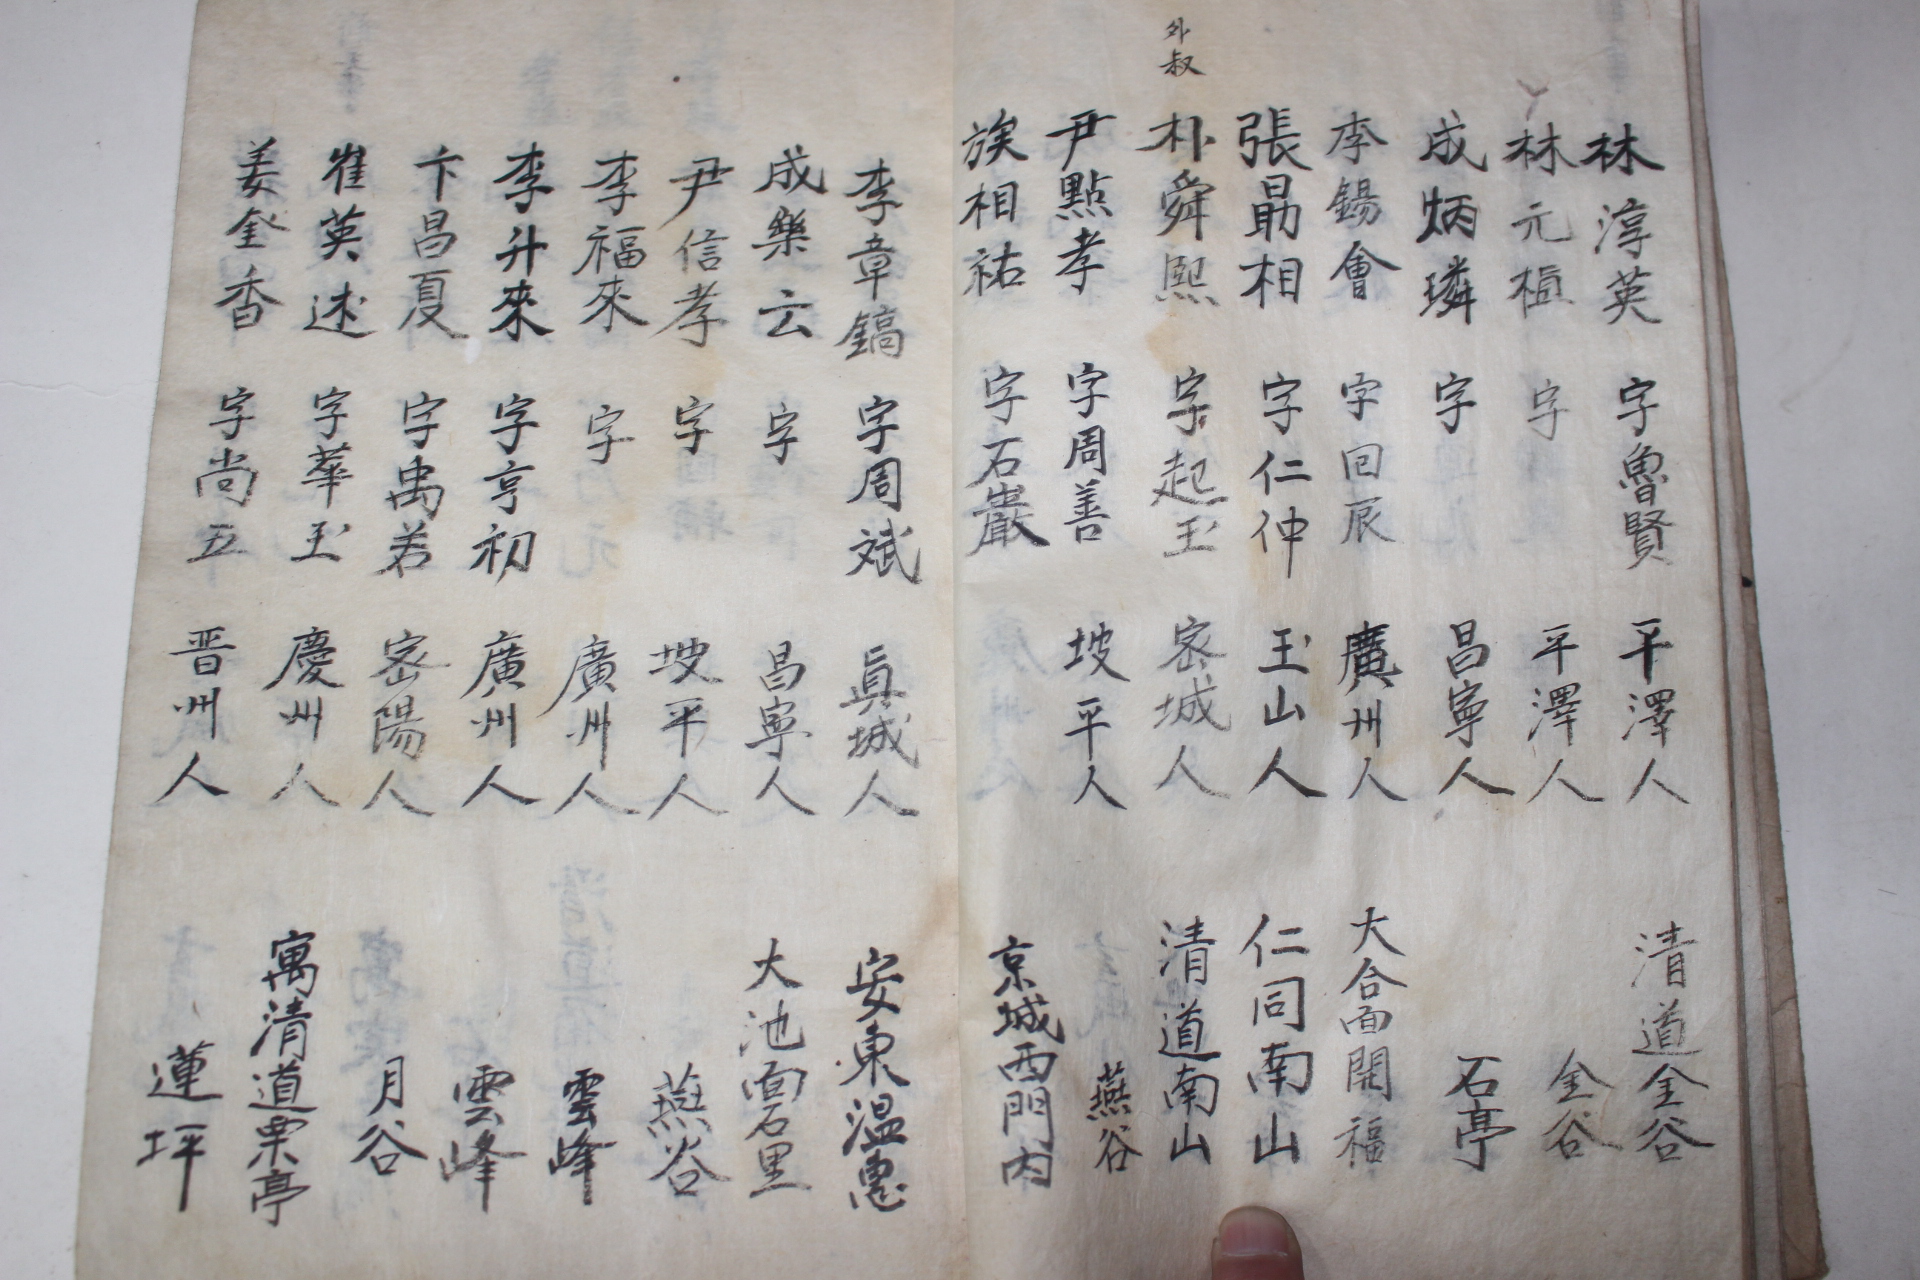 林淳英 字魯賢 平澤人 清道金谷
林元植 字 平澤人 金谷
成炳璘 字 昌寧人 石亭
李錫會 字回辰 廣州人 大合面開福
張勗相 字仁仲 玉山人 仁同南山
外叔
朴舜熙 字起玉 密城人 清道南山
尹點孝 字周善 坡平人 燕谷
族相祐 字石巖 京城西門內
李章鎬 字周斌 眞城人 安東温惠
成樂云 字 昌寧人 大池面石里
尹信孝 字 坡平人 燕谷
李福來 字 廣州人 雲峰
李升來 字亨初 廣州人 雲峰
卞昌夏 字禹若 密陽人 月谷
崔英述 字華玉 慶州人 寓清道栗亭
姜奎香 字尚五 晋州人 蓮坪